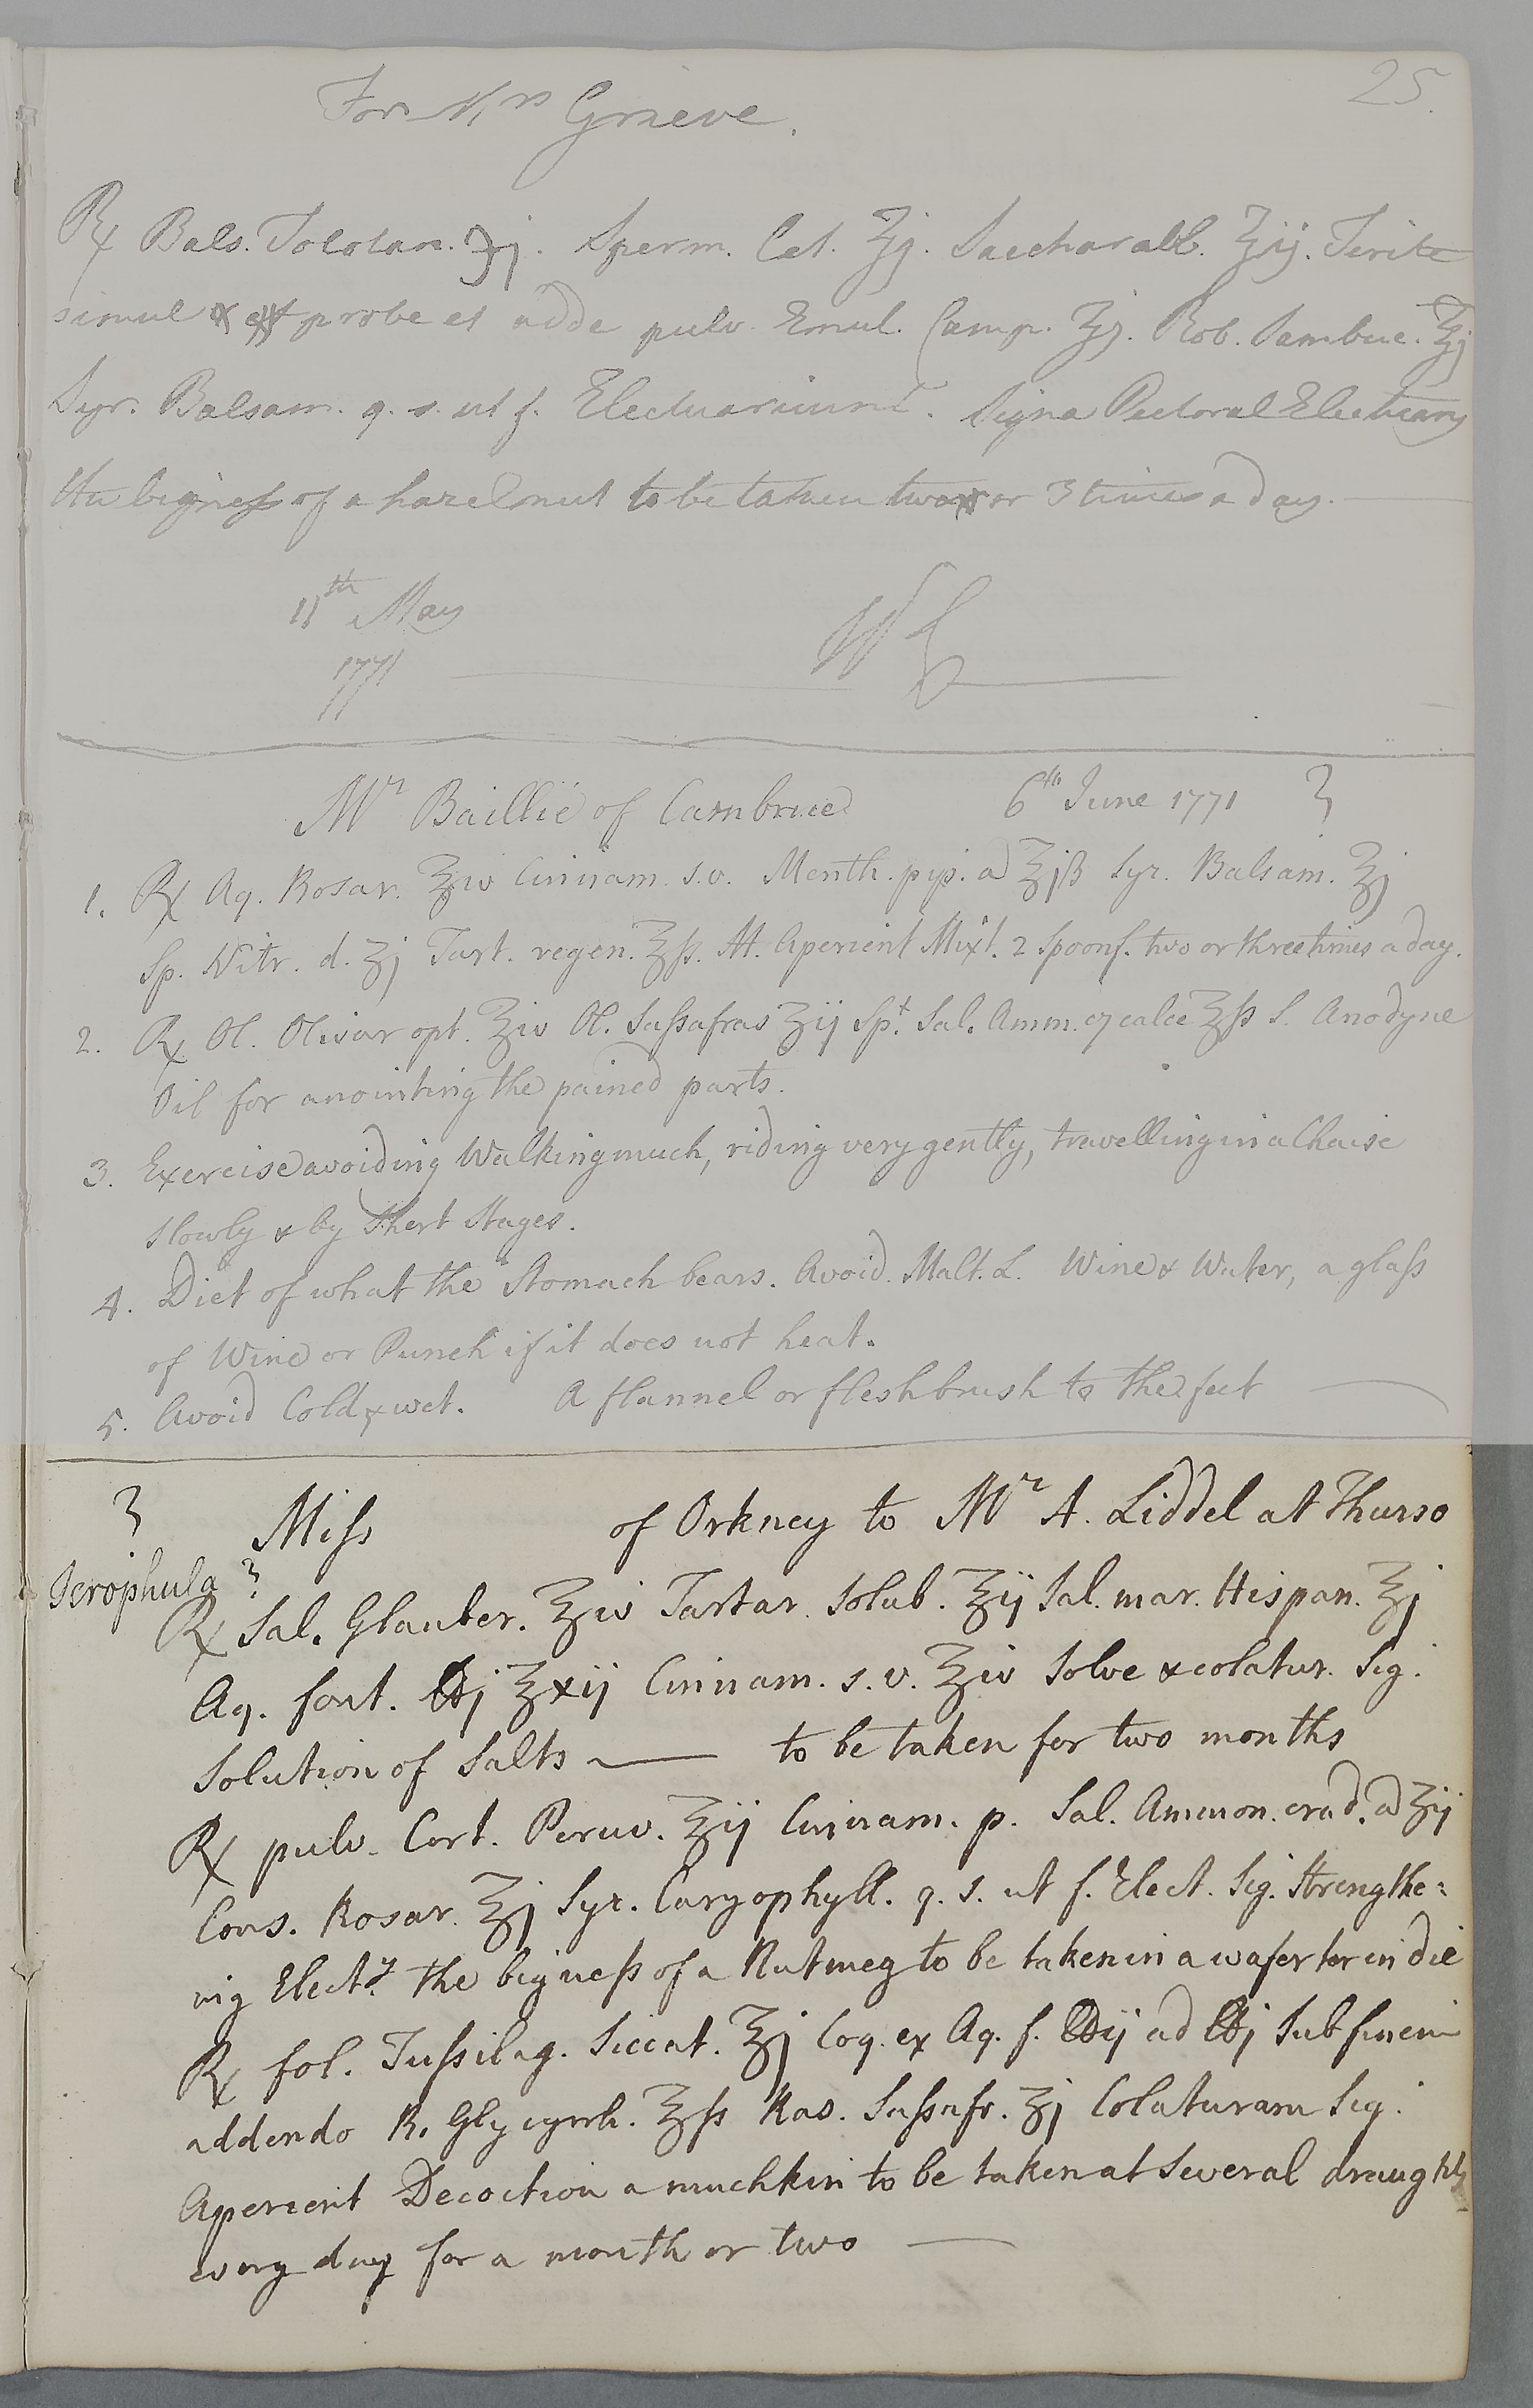 25.
For Mrs Grieve.
℞ Bals. Tolotan. ʒj. Sperm. Cet. ʒj. Sacchar alb. ʒij. Terite
simul probe et adde pulv. Emul. Comp. ʒj. Rob. Sambuc. ℥j
Syr. Balsam. q. s. ut f. Electuarium. Signa Pectoral Electuary
the bigness of a hazelnut to be taken two or 3 times a day.
11th May
1771
WC
Mr Baillie of 6th June 1771 ?
1. ℞ Aq. Rosar. ℥iv Cinnam. s.v. Menth. pip. a ℥jß Syr. Balsam. ℥j
Sp. Nitr. d. ʒj Tart. regen. ℥ß. M. Aperient Mixt. 2 spoonf. two or three times a day.
2. ℞ Ol. Olivar opt. ℥iv Ol. Sassafras ʒij Spt. Sal. Amm. c calce ℥ß S. Anodyne
Oil for anointing the pained parts.
3. Exercise avoiding Walking much, riding very gently, travelling in a Chaise
slowly & by Short Stages.
4. Diet of what the Stomach bears. Avoid Malt. L. Wine & Water, a glass
of Wine or Punch if it does not heat.
5. Avoid Cold & wet. A flannel or fleshbrush to the feet
? Miss of Orkney to Mr A. Liddel at Thurso
Scrophula ?
℞ Sal. Glauber. ℥iv Tartar. Solub. ℥ij Sal. mar. Hispan. ℥j
Aq. font. ℔j ℥xij Cinnam. s. v. ℥iv Solve & colatur. Sig.
Solution of Salts — to be taken for two months
℞ pulv. Cort. Peruv. ℥ij Cinnam. p. Sal. Ammon. crud. a ʒij
Cons. Rosar. ℥j Syr. Caryophyll. q. s. ut f. Elect. Sig. Strengthe=
nig Electy. the bigness of a Nutmeg to be taken in a wafer ter in die
℞ fol. Tussilag. Siccat. ℥j Coq. ex Aq. f. ℔ij ad ℔j Sub finem
addendo R. Glycyrrh. ℥ß Ras. Sassafr. ʒj Colaturam Sig.
Aperient Decoction a muchkin to be taken at Several draughts
every day for a month or two —